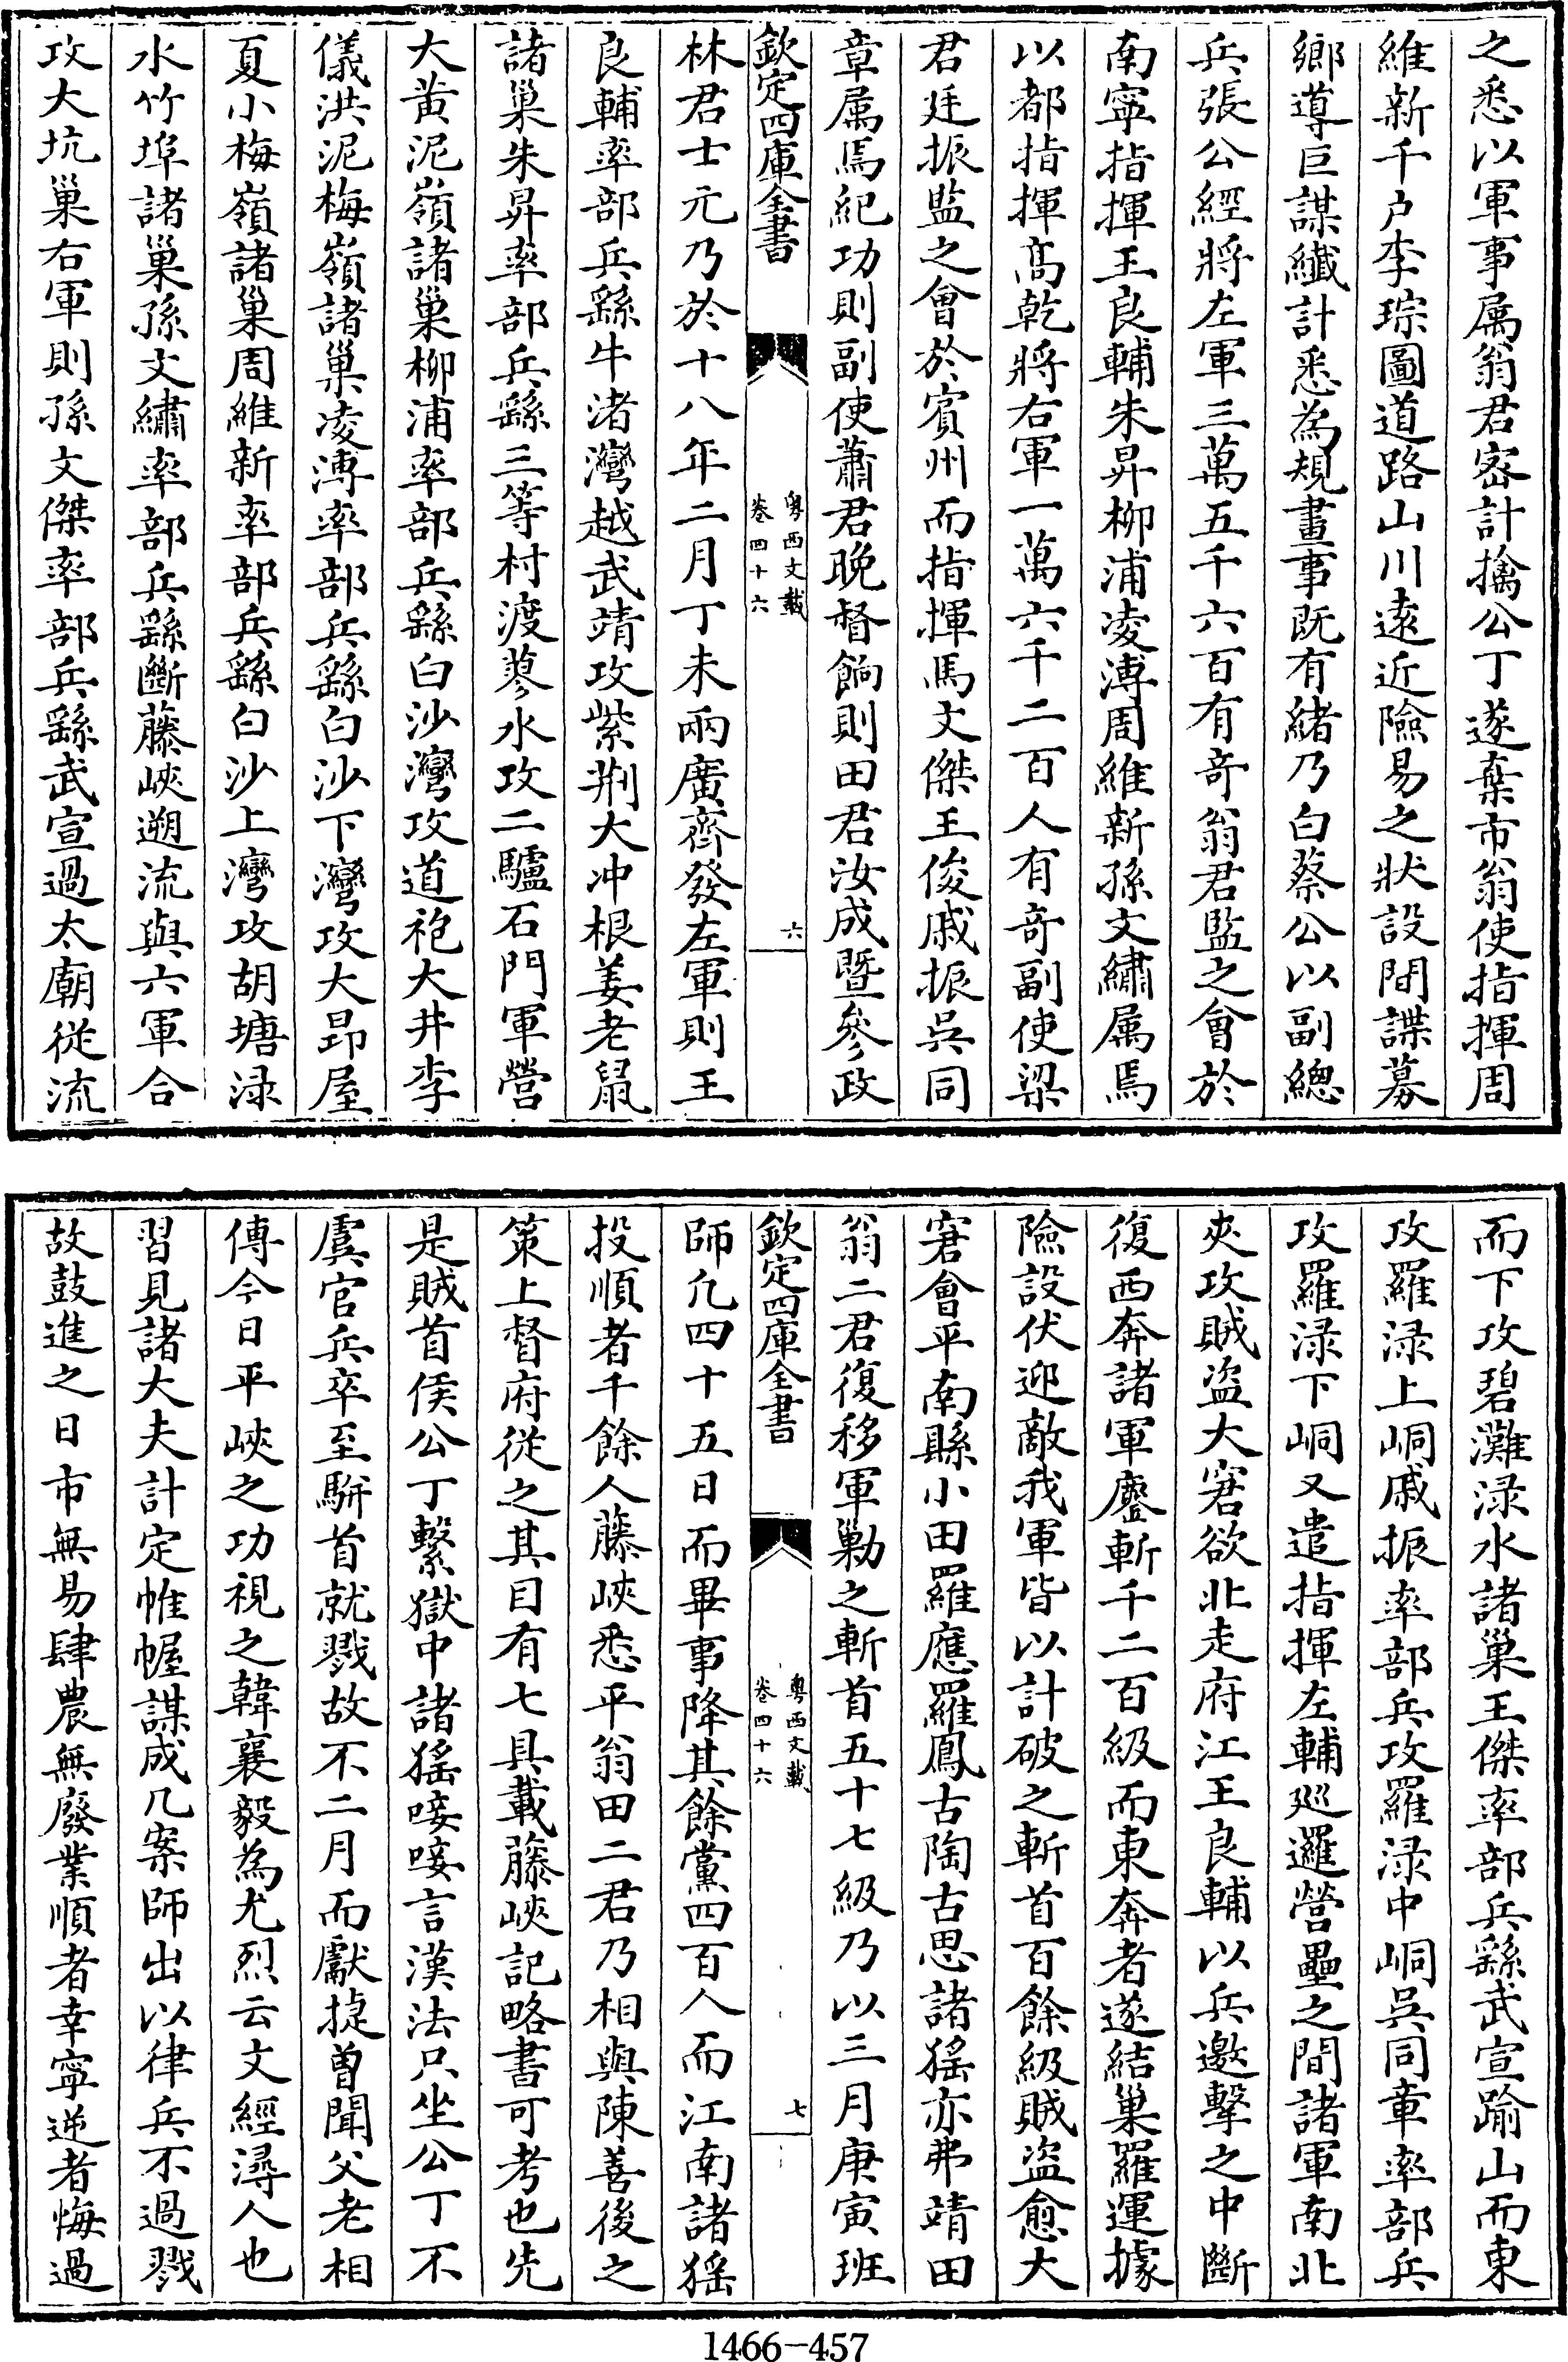 之悉以軍事属翁君宻計擒公丁遂棄市翁使指揮周
維新千户李琮圖道路山川逺近險易之狀設間諜募
鄉導巨謀纎計悉為規畫事既有緒乃白蔡公以副總
兵張公經將左軍三萬五千六百有竒翁君監之會於
南寧指揮王良輔朱昇柳浦凌溥周維新孫文繡属焉
以都指揮髙乾將右軍一萬六千二百人有竒副使梁
君廷振監之會於賓州而指揮馬文傑王俊戚振呉同
章属焉紀功則副使蕭君晚督餉則田君汝成暨參政
欽定四庫全書
粤西文載
卷四十六
六
林君士元乃於十八年二月丁未兩廣齊發左軍則王
良輔率部兵繇牛渚灣越武靖攻紫荆大冲根姜老鼠
諸巢朱昇率部兵繇三等村渡蓼水攻二驢石門軍營
大黄泥嶺諸巢柳浦率部兵繇白沙灣攻道袍大井李
儀洪泥梅嶺諸巢凌溥率部兵繇白沙下灣攻大昂屋
夏小梅嶺諸巢周維新率部兵繇白沙上灣攻胡塘渌
水竹埠諸巢孫文繡率部兵繇斷藤峽遡流與六軍合
攻大坑巢右軍則孫文傑率部兵繇武宣過太廟從流
而下攻碧灘渌水諸巢王傑率部兵繇武宣踰山而東
攻羅渌上峒戚振率部兵攻羅渌中峒呉同章率部兵
攻羅渌下峒又遣指揮左輔廵邏營壘之間諸軍南北
夾攻賊盗大窘欲北走府江王良輔以兵邀擊之中斷
復西奔諸軍鏖斬千二百級而東奔者遂結巢羅運據
險設伏迎敵我軍皆以計破之斬首百餘級賊盗愈大
窘會平南縣小田羅應羅鳳古陶古思諸猺亦弗靖田
翁二君復移軍勦之斬首五十七級乃以三月庚寅班
欽定四庫全書
粤西文載
卷四十六
七
師凡四十五日而畢事降其餘黨四百人而江南諸猺
投順者千餘人藤峽悉平翁田二君乃相與陳善後之
策上督府從之其目有七具載藤峽記略書可考也先
是賊首侯公丁繫獄中諸猺唼唼言漢法只坐公丁不
虞官兵卒至駢首就戮故不二月而獻㨗曽聞父老相
傳今日平峽之功視之韓襄毅為尤烈云文經潯人也
習見諸大夫計定帷幄謀成几案師出以律兵不過戮
故鼓進之日市無易肆農無廢業順者幸寧逆者悔過
1466-457